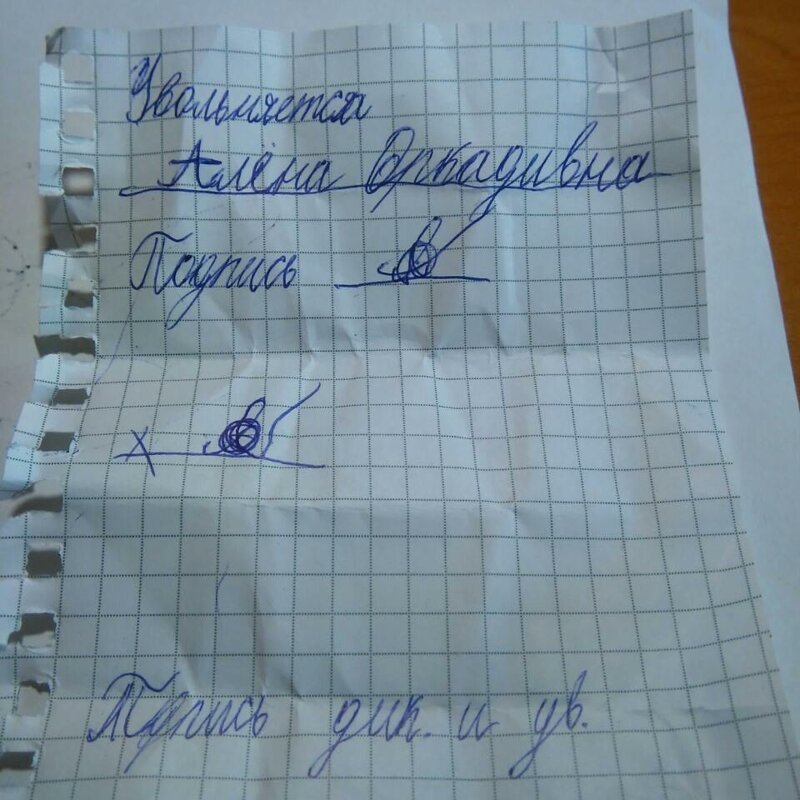 Увольняется
Алёна Оркадивна
Подпись
х
Подпись дик. и ув.